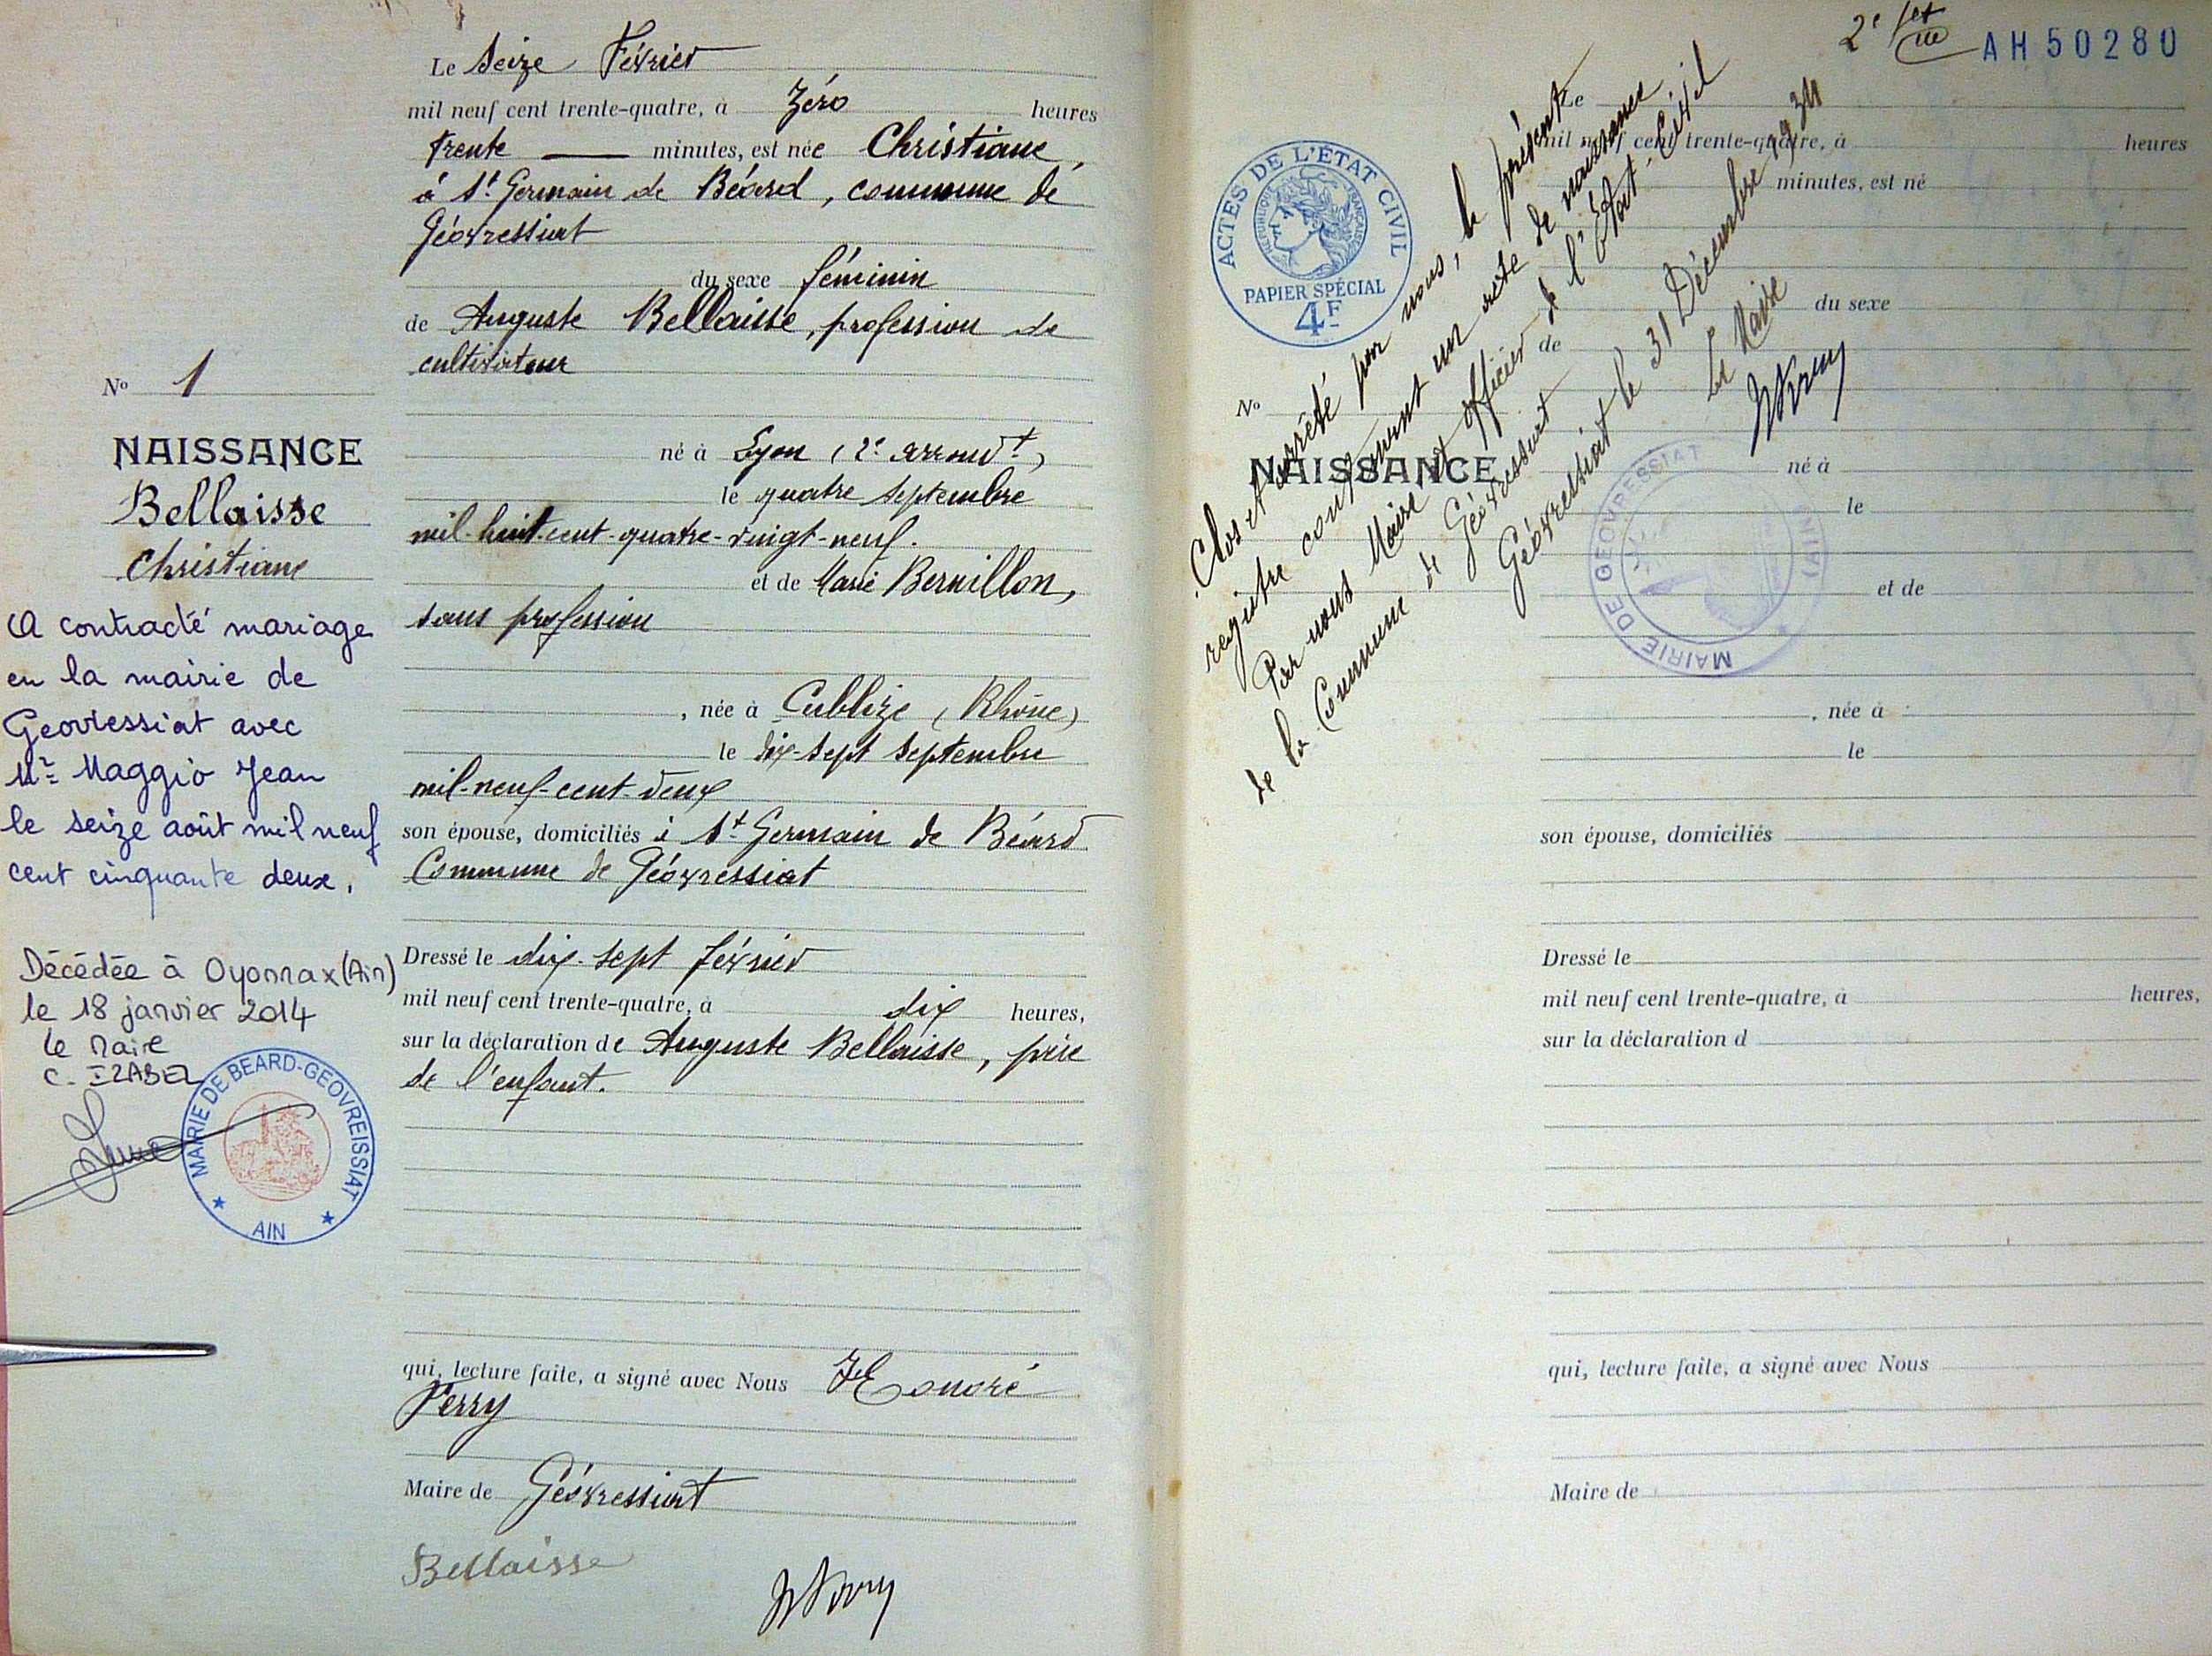 Le Seize Février
mil neuf cent trente-quatre, à Zéro heures
trente — minutes, est née Christiane,
à St Germain de Béard, commune de
Géovressiat
du sexe féminin
de Auguste Bellaisse, profession de
cultivateur
né à Lyon (2e arrondt)
le quatre septembre
mil-huit-cent-quatre-vingt-neuf.
et de Marie Bernillon,
sans profession
, née à Cublize (Rhône)
le dix-sept septembre
mil-neuf-cent-deux
son épouse, domiciliés à St Germain de Béard
Commune de Géovressiat
Dressé le dix-sept février
mil neuf cent trente-quatre, à dix heures,
sur la déclaration de Auguste Bellaisse, père
de l'enfant.
qui, lecture faite, a signé avec Nous Honoré
Perry
Maire de Géovressiat
Bellaisse
No 1
NAISSANCE
Bellaisse
Christiane
A contracté mariage
en la mairie de
Geovressiat avec
Mr Maggio Jean
le seize août mil neuf
cent cinquante deux.
Décédée à Oyonnax (Ain)
le 18 janvier 2014
Le Maire
C. IZABEL
MAIRIE DE BEARD-GEOVREISSIAT
AIN
2e
AH 50280
ACTES DE L'ÉTAT CIVIL
RÉPUBLIQUE FRANÇAISE
PAPIER SPÉCIAL
4F
Clos et arrêté par nous, le présent
registre comprenant un acte de naissance
Par nous Maire et officier de l'État-Civil
de la Commune de Géovressiat
Géovressiat le 31 Décembre 1934
Le Maire
MAIRIE DE GEOVRESSIAT (AIN)
No
NAISSANCE
Le
mil neuf cent trente-quatre, à heures
minutes, est né
du sexe
de
né à
le
et de
, née à
le
son épouse, domiciliés
Dressé le
mil neuf cent trente-quatre, à heures,
sur la déclaration d
qui, lecture faite, a signé avec Nous
Maire de